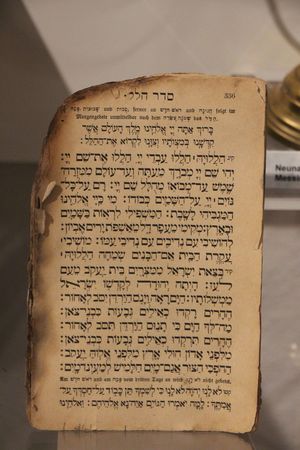 סדר הלל׃ 336
חנוכה und ראש חדש an ferner, סכות und שבועות, פסח An
Morgengebete unmittelbar nach dem folgt im
בָּרוּךְ אַתָּה יְיָ אֱלֹהֵינוּ מֶלֶךְ הָעוֹלָם אֲשֶׁר
קִדְּשָׁנוּ בְּמִצְוֹתָיו וְצִוָּנוּ לִקְרוֹא אֶת־הַהַלֵּל׃
הַלְלוּיָהּ הַלְלוּ עַבְדֵי יְיָ הַלְלוּ אֶת־שֵׁם יְיָ׃
יְהִי שֵׁם יְיָ מְבֹרָךְ מֵעַתָּה וְעַד־עוֹלָם׃ מִמִּזְרַח־
שֶׁמֶשׁ עַד־מְבוֹאוֹ מְהֻלָּל שֵׁם יְיָ׃ רָם עַל־כָּל־
גּוֹיִם יְיָ עַל הַשָּׁמַיִם כְּבוֹדוֹ׃ מִי כַּיְיָ אֱלֹהֵינוּ
הַמַּגְבִּיהִי לָשָׁבֶת׃ הַמַּשְׁפִּילִי לִרְאוֹת בַּשָּׁמַיִם
וּבָאָרֶץ׃ מְקִימִי מֵעָפָר דָּל מֵאַשְׁפֹּת יָרִים אֶבְיוֹן׃
לְהוֹשִׁיבִי עִם־נְדִיבִים עִם נְדִיבֵי עַמּוֹ׃ מוֹשִׁיבִי
עֲקֶרֶת הַבַּיִת אֵם־הַבָּנִים שְׂמֵחָה הַלְלוּיָהּ׃
בְּצֵאת יִשְׂרָאֵל מִמִּצְרָיִם בֵּית יַעֲקֹב מֵעַם
לֹעֵז׃ הָיְתָה יְהוּדָה לְקָדְשׁוֹ יִשְׂרָאֵל
מַמְשְׁלוֹתָיו׃ הַיָּם רָאָה וַיָּנֹס הַיַּרְדֵּן יִסֹּב לְאָחוֹר׃
הֶהָרִים רָקְדוּ כְאֵילִים גְּבָעוֹת כִּבְנֵי־צֹאן׃
מַה־לְּךָ הַיָּם כִּי תָנוּס הַיַּרְדֵּן תִּסֹּב לְאָחוֹר׃
הֶהָרִים תִּרְקְדוּ כְאֵילִים גְּבָעוֹת כִּבְנֵי־צֹאן׃
מִלִּפְנֵי אָדוֹן חוּלִי אָרֶץ מִלִּפְנֵי אֱלוֹהַּ יַעֲקֹב׃
הַהֹפְכִי הַצּוּר אֲגַם־מָיִם חַלָּמִישׁ לְמַעְיְנוֹ־מָיִם׃
An ראש חדש und am פסח vom dritten Tage an wird לא לנו nicht gebetet.
לֹא לָנוּ יְהוָה לֹא לָנוּ כִּי לְשִׁמְךָ תֵּן כָּבוֹד עַל־חַסְדְּךָ עַל־
אֲמִתֶּךָ׃ לָמָּה יֹאמְרוּ הַגּוֹיִם אַיֵּה־נָא אֱלֹהֵיהֶם׃ וֵאלֹהֵינוּ
Neuna
Messi